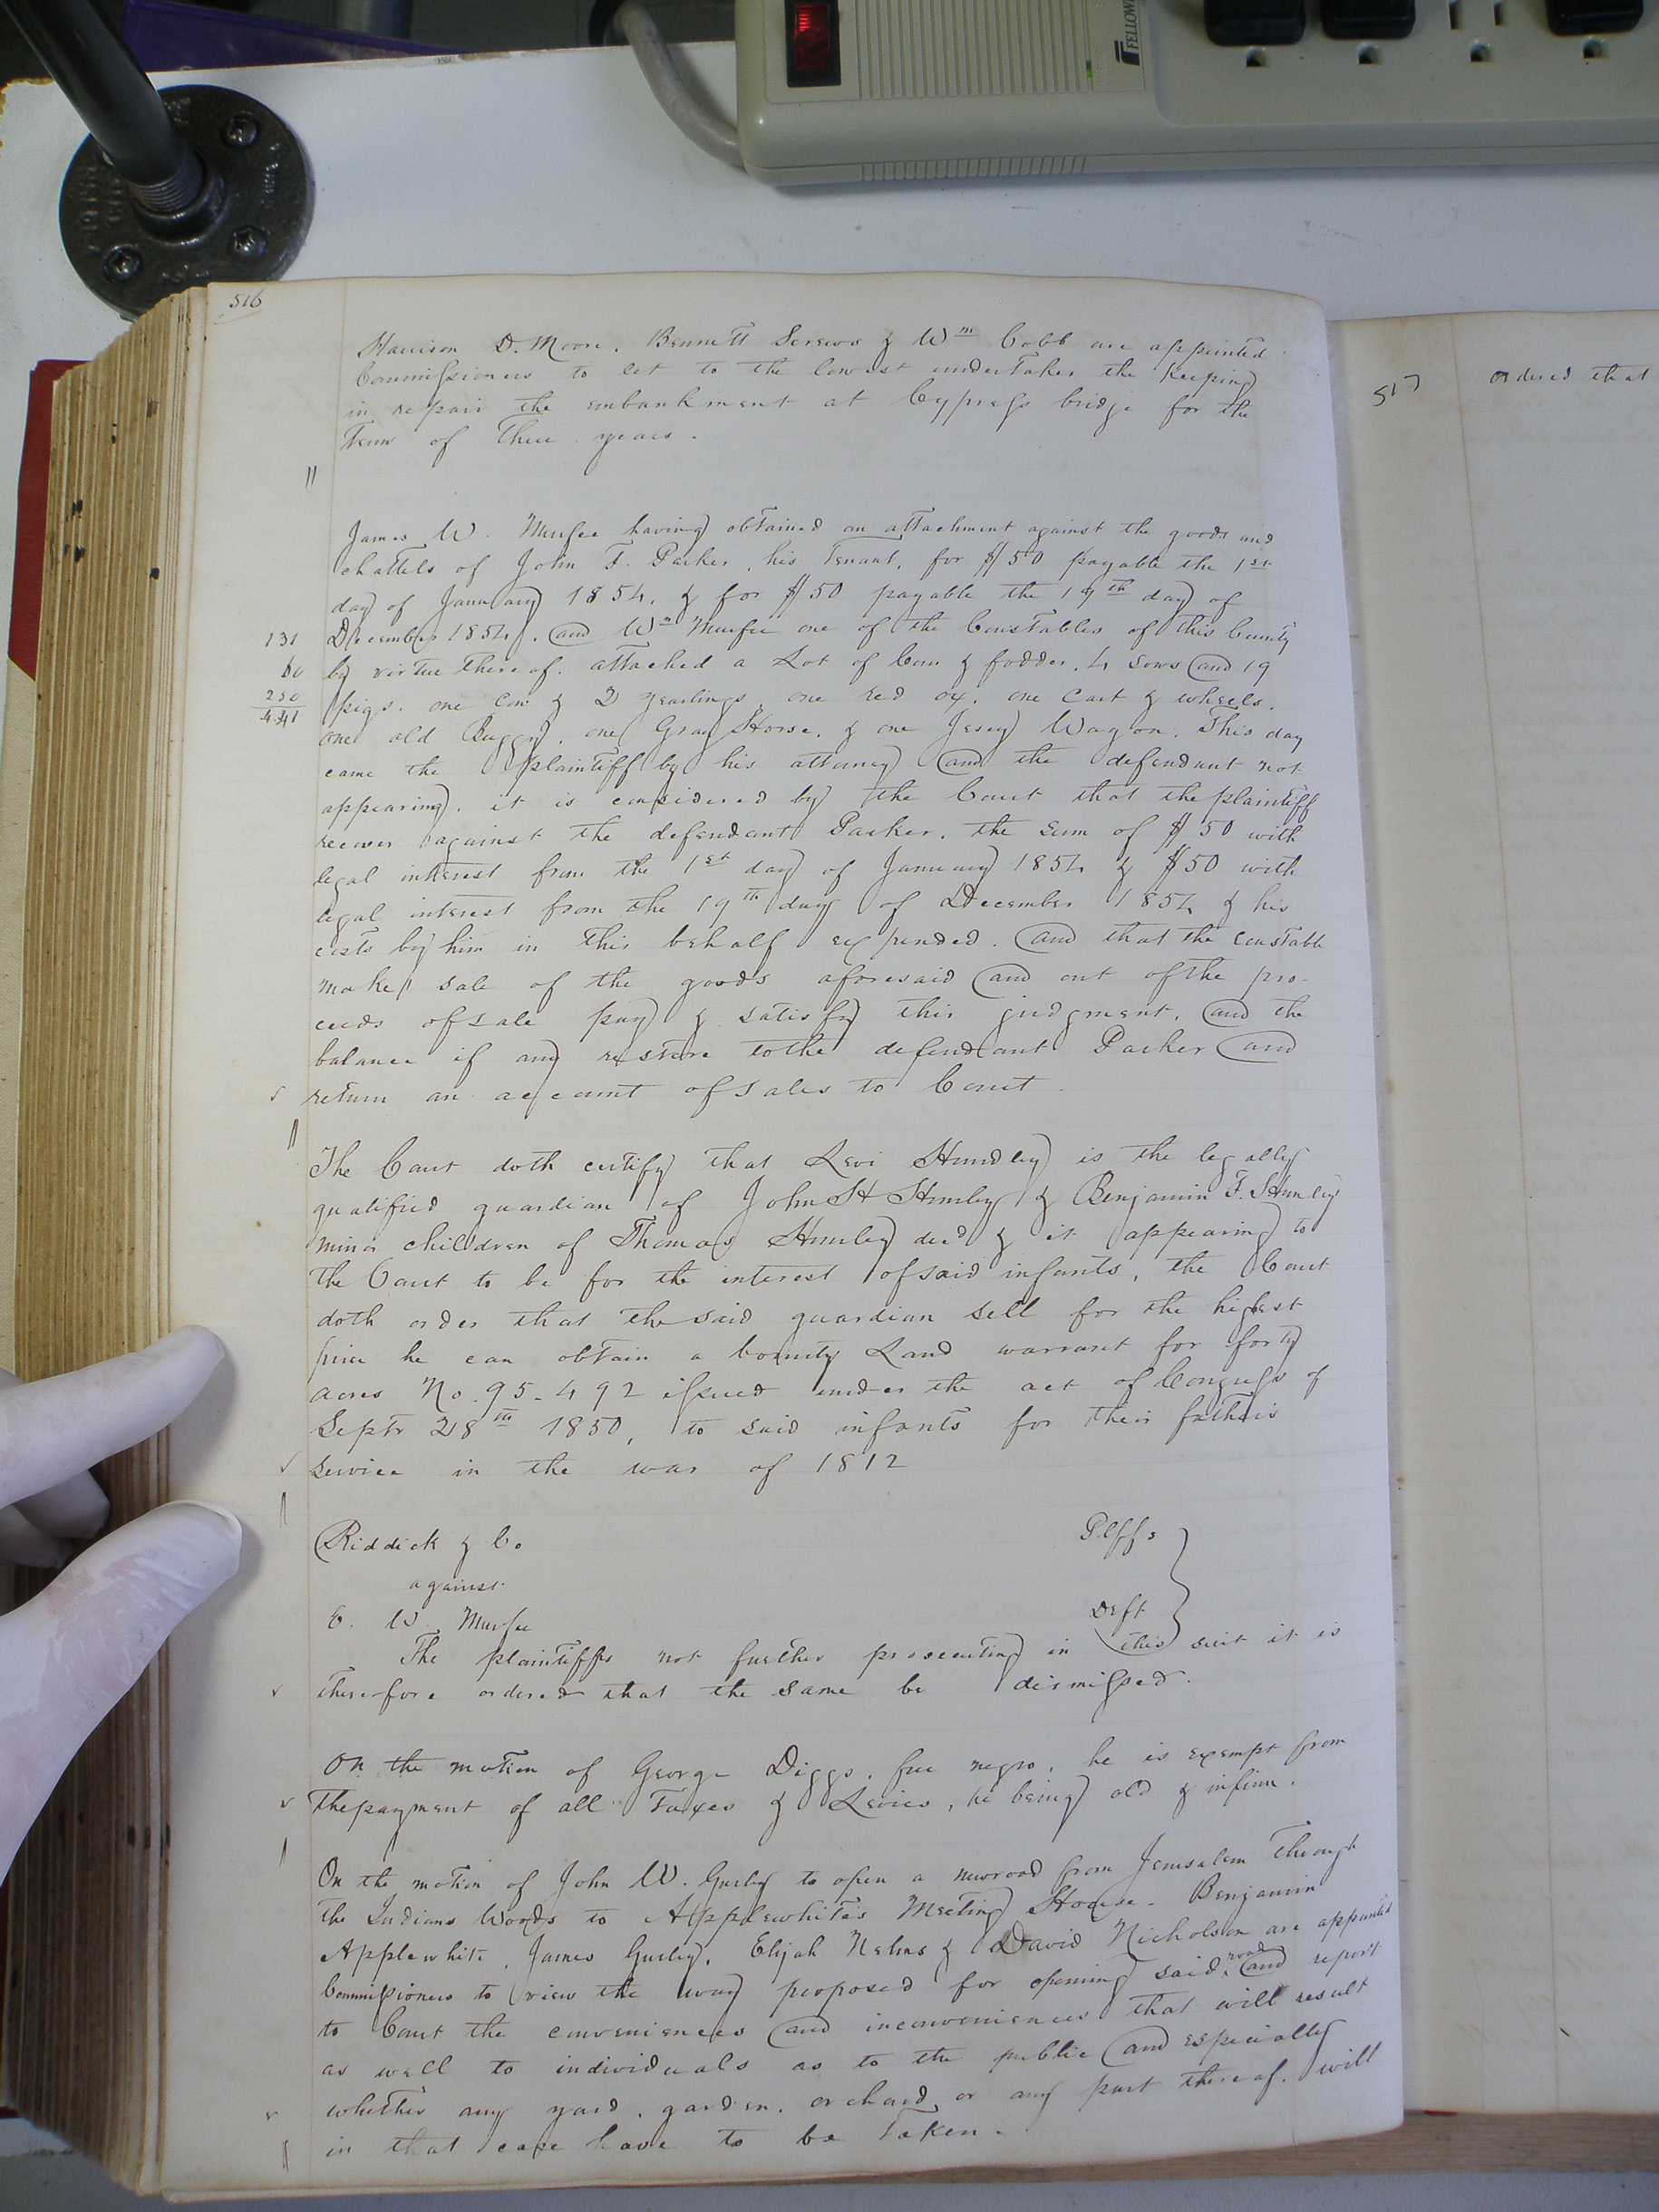 FELLOWES
516
Harrison D. Moore. Bennett Screws & Wm Cobb are appointed
Commissioners to let to the lowest undertaker the keeping
in repair the embankment at Cypress bridge for the
Term of Three years.
James W. Murfee having obtained an attachment against the goods and
chattels of John F. Parker, his Tenant, for $50 payable the 1st
day of January 1854, & for $50 payable the 19th day of
131
December 1854, and Wm Murfee one of the Constables of this County
by virtue thereof. attached a Lot of Corn & fodder. 4 sows and 19
250
pigs. one Cow & 2 yearlings, one red ox. one Cart & wheels.
4.41
one old Buggy, one Gray Horse, & one Jersey Wagon. This day
came the plaintiff by his attorney and the defendant not
appearing. it is considered by the Court that the plaintiff
recover against the defendant Parker. the sum of $50 with
legal interest from the 1st day of January 1854 & $50 with
legal interest from the 19th day of December 1854 & his
costs by him in this behalf expended. and that the constable
make sale of the goods aforesaid and out of the pro-
ceeds of sale pay & satisfy this judgment, and the
balance if any restore to the defendant Parker and
return an account of sales to Court.
The Court doth certify that Levi Hundley is the legally
qualified guardian of John H Hunley & Benjamin F. Hunley
minor children of Thomas Hunley decd & it appearing to
the Court to be for the interest of said infants, the Court
doth order that the said guardian sell for the highest
price he can obtain a bounty Land warrant for forty
acres No. 95-492 issued under the act of Congress of
Septr 28th 1850, to said infants for their fathers
service in the war of 1812
Riddick & Co Plffs
against
E. W. Murfee Deft
The plaintiffs not further prosecuting in this suit it is
therefore ordered that the same be dismissed.
On the motion of George Diggs, free negro, he is exempt from
the payment of all Taxes & Levies, he being old & infirm.
On the motion of John W. Gurley to open a new road from Jerusalem Through
the Indians Woods to Applewhite's Meeting House. Benjamin
Applewhite, James Gurley, Elijah Nelms & David Nicholson are appointed
Commissioners to view the way proposed for opening said road and report
to Court the conveniences and inconveniences that will result
as well to individuals as to the public and especially
whether any yard, garden, orchard, or any part thereof. will
in that case have to be Taken.
517
Ordered that